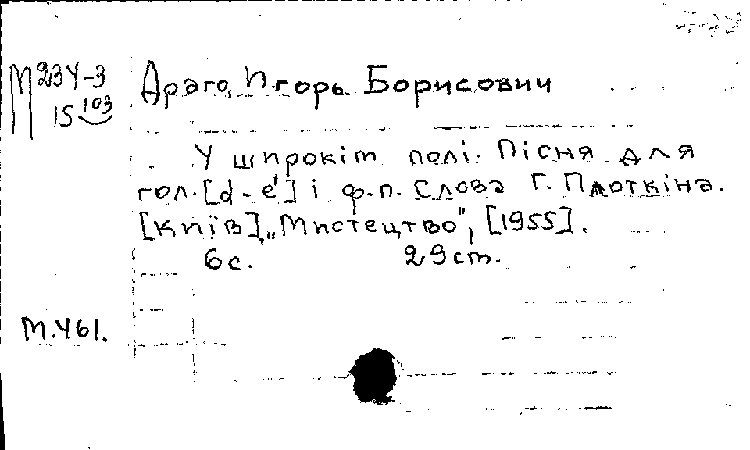 М 234-3 Драго, Игорь Борисович
15 103
У широкім полі. Пісня для
гол. [d-e'] і ф.п. Слова Г. Плоткіна.
[Київ], „Мистецтво", [1955].
6с. 29 ст.
М.461.